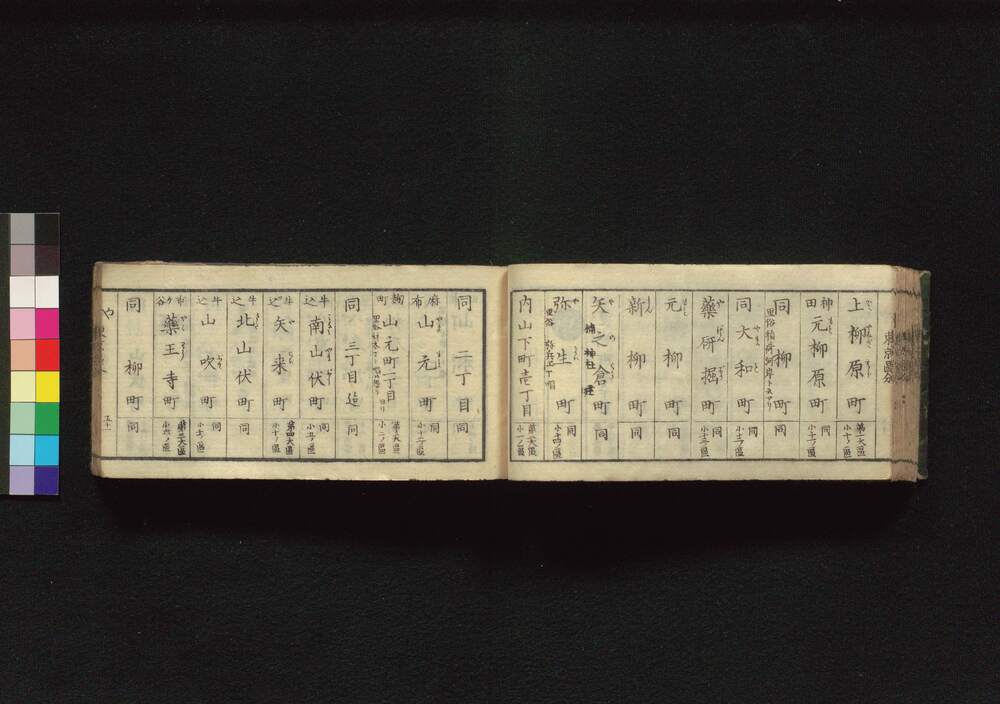 東京區分
上柳原町 第一大區 小十ノ區
神田 元柳原町 同 小十一ノ區
同 柳町 同
里俗稲荷河岸ト云アリ
同 大和町 同 小十二ノ區
藥研掘町 同 小十三ノ區
元柳町 同
新柳町 同
矢之倉町 同
弥生町 同 小十四ノ區
内山下町壱丁目 第二大區 小一ノ區
同 二丁目 同
麻布 山元町 同 小十二ノ區
麹町 山元町二丁目 第三大區 小二ノ區
同 三丁目迄 同
牛込 南山伏町 同
牛込 矢来町 第四大區 小十ノ區
牛込 北山伏町
牛込 山吹町 同
市ヶ谷 藥王寺町 第三大區 小六ノ區
同 柳町 同
や
五十一